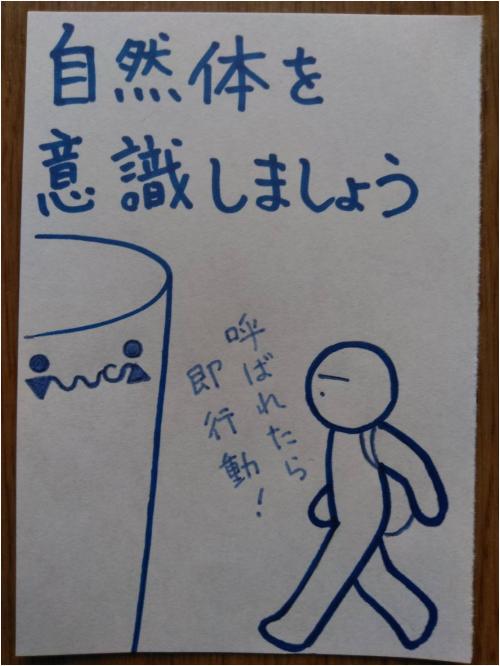 自然体を
意識しましょう
呼ばれたら
即行動!